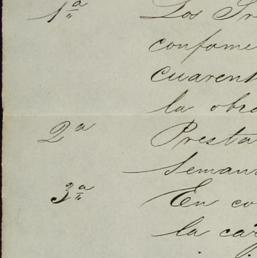 1ª Los Sr
confome
Cuarent
la obre
2ª Presta
Semana
3ª En co
la car